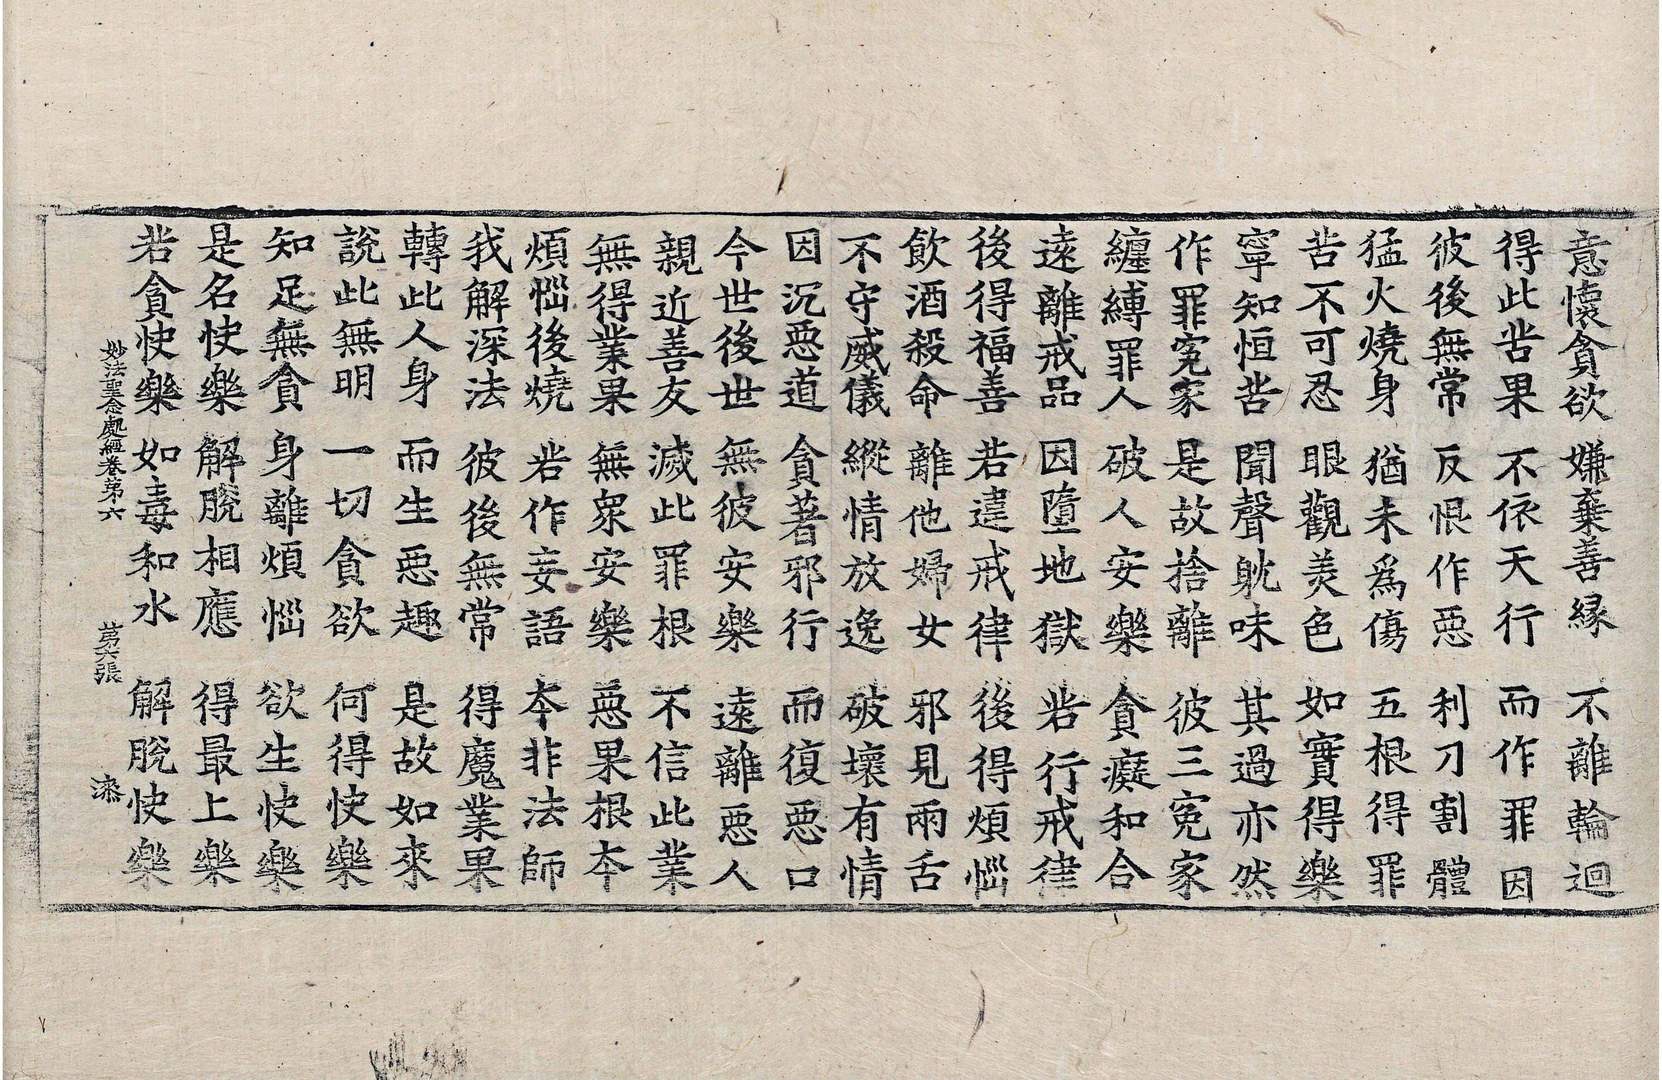 意懷貪欲 嫌棄善縁 不離輪迴
得此苦果 不依天行 而作罪因
彼後無常 反恨作惡 利刀割體
猛火燒身 猶未爲傷 五根得罪
苦不可忍 眼觀美色 如實得樂
寧知恒苦 聞聲躭味 其過亦然
作罪寃家 是故捨離 彼三寃家
纏縛罪人 破人安樂 貪癡和合
遠離戒品 因墮地獄 若行戒律
後得福善 若違戒律 後得煩惱
飲酒殺命 離他婦女 邪見兩舌
不守威儀 縱情放逸 破壞有情
因沉惡道 貪著邪行 而復惡口
今世後世 無彼安樂 遠離惡人
親近善友 滅此罪根 不信此業
無得業果 無衆安樂 惡果根本
煩惱後燒 若作妄語 本非法師
我解深法 彼後無常 得魔業果
轉此人身 而生惡趣 是故如來
說此無明 一切貪欲 何得快樂
知足無貪 身離煩惱 欲生快樂
是名快樂 解脫相應 得最上樂
若貪快樂 如毒和水 解脫快樂
妙法聖念處經卷第六 第六張 柒